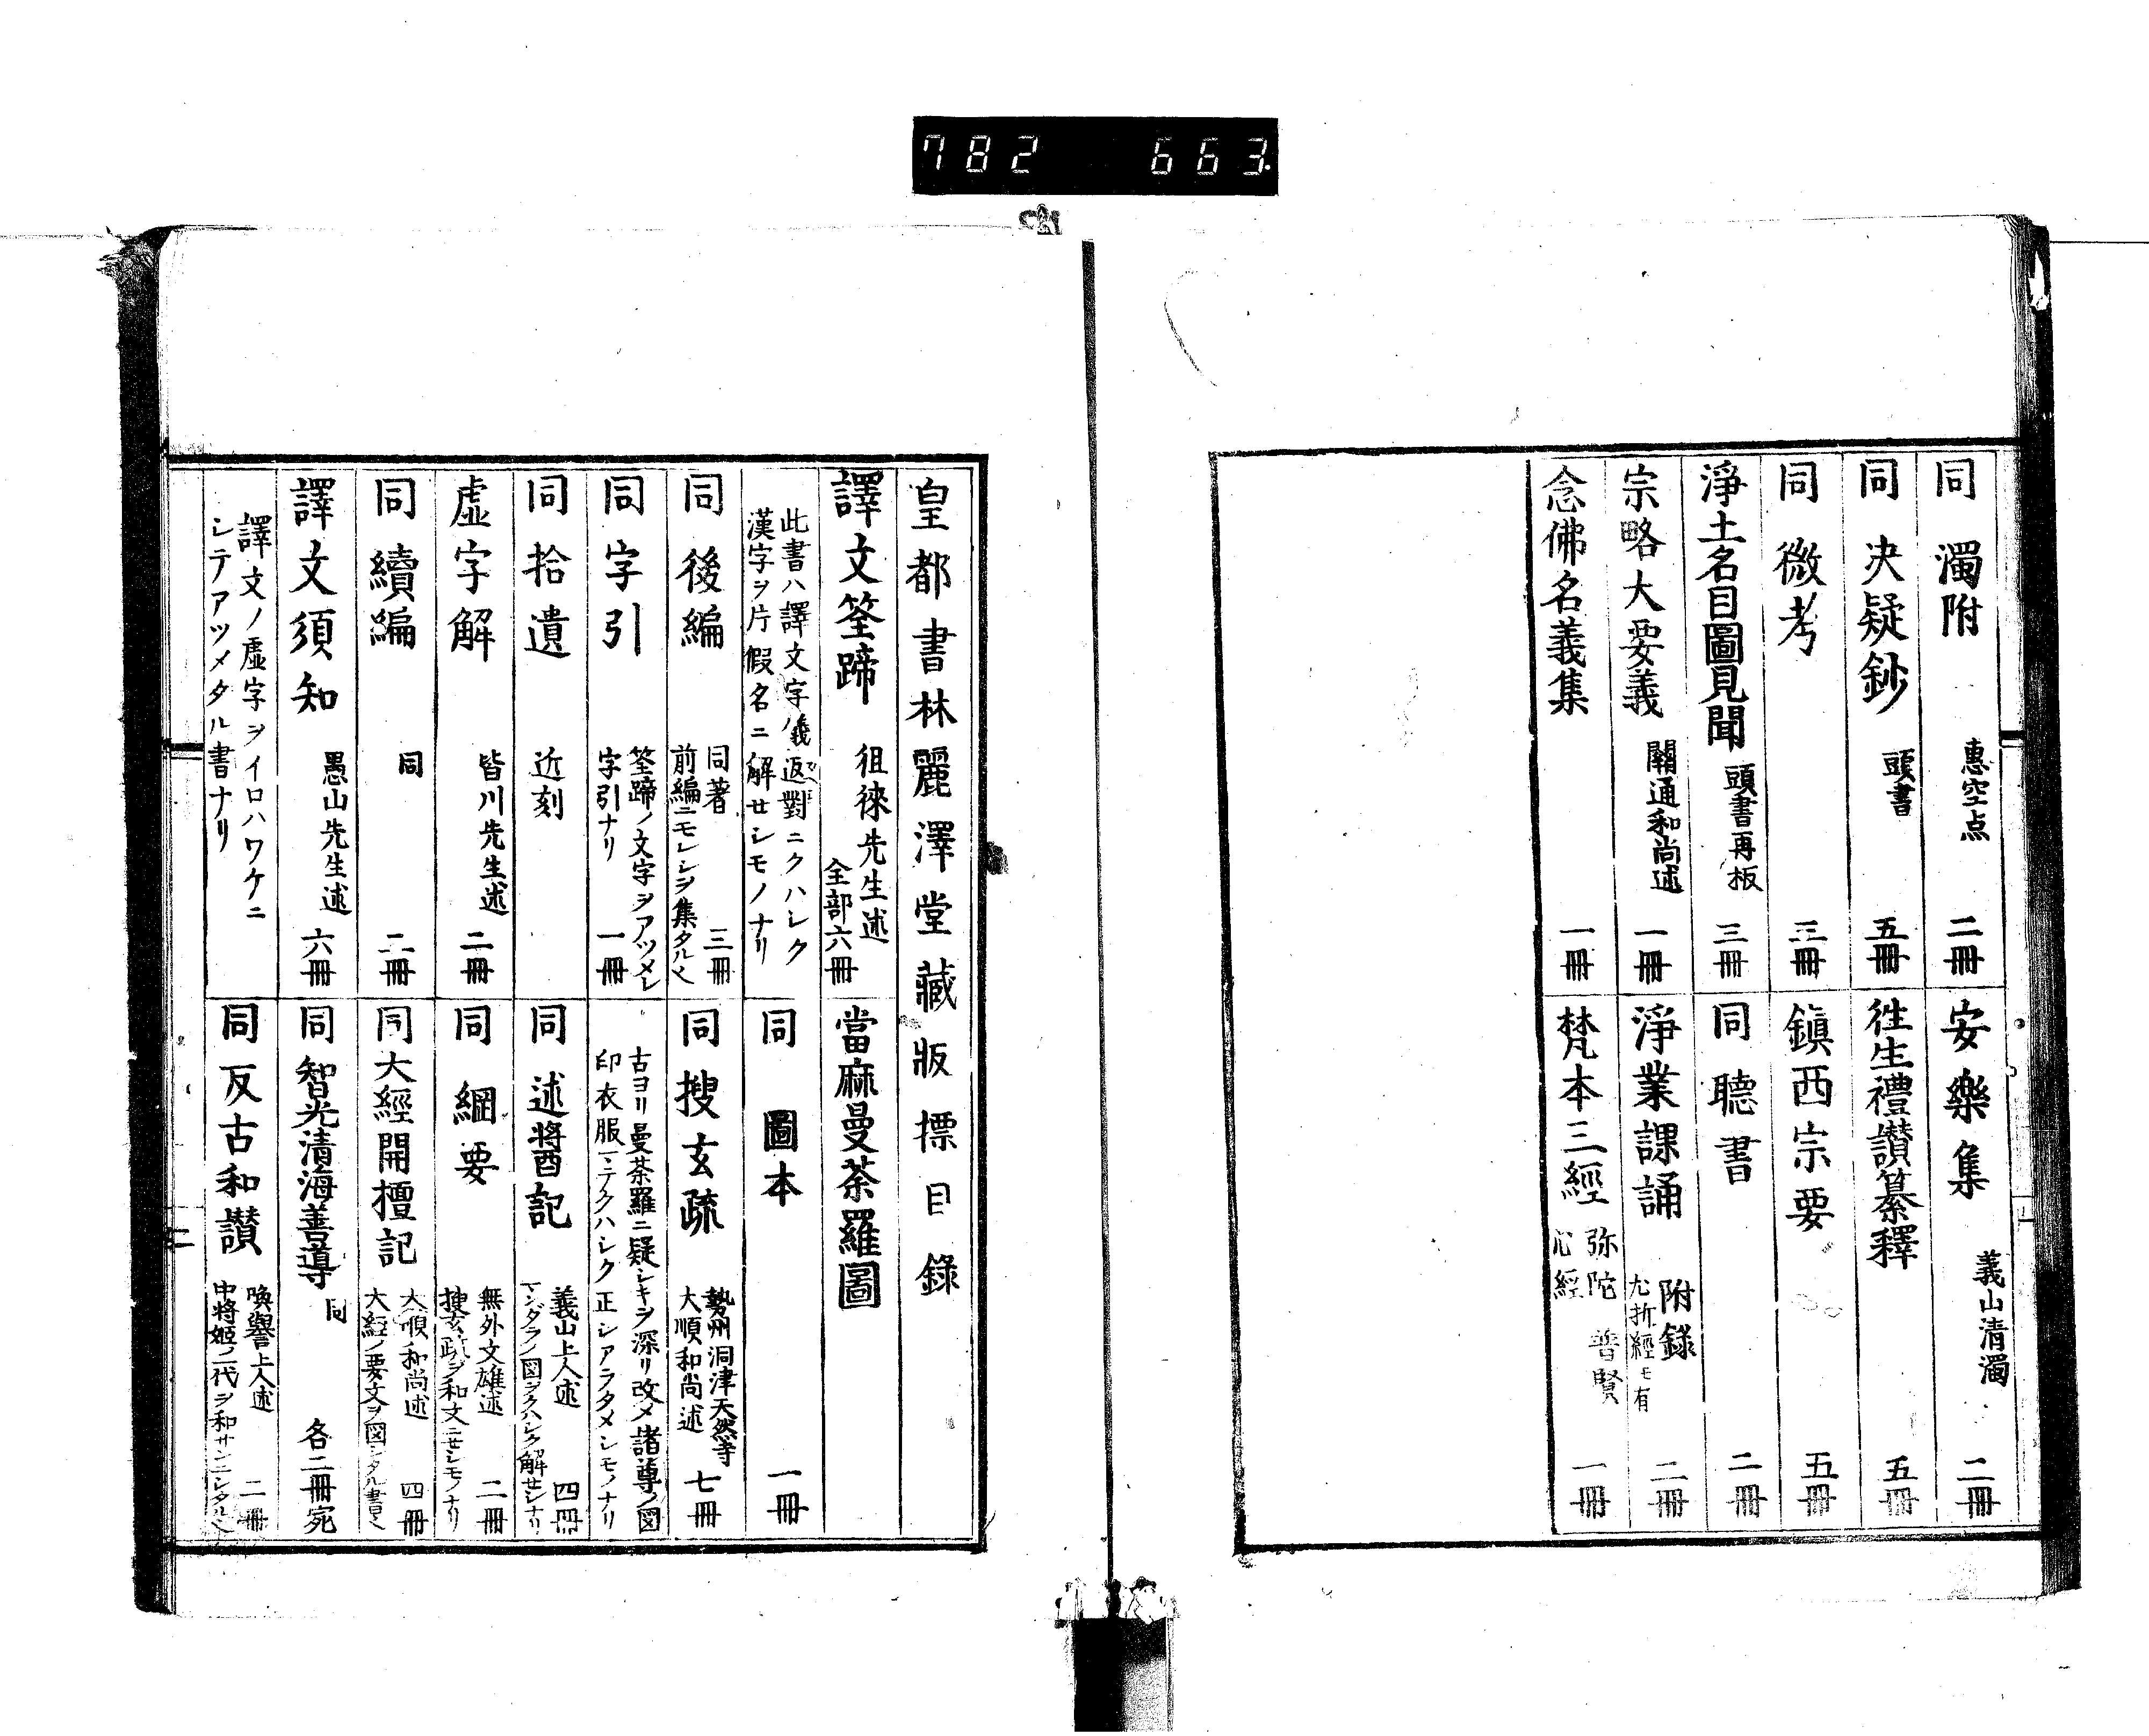 782 663
同 濁附 惠空点 二冊
同 决疑鈔 頭書 五冊
同 微考 三冊
淨土名目圖見聞 頭書再板 三冊
宗略大要義 關通和尚述 一冊
念佛名義集 一冊
安樂集 義山清濁 二冊
徃生禮讃纂釋 五冊
鎭西宗要 五冊
同 聽書 二冊
淨業課誦 附錄 二冊
尤折經モ有
梵本三經 弥陀 普賢 一冊
心經
皇都書林麗澤堂藏版標目錄
譯文筌蹄 徂徠先生述
全部六冊
此書ハ譯文字ノ義返對ニクハシク
漢字ヲ片假名ニ解セシモノナリ
同 後編 同著 三冊
前編ニモレシヲ集タル也
同 字引 筌蹄ノ文字ヲアツメシ
字引ナリ 一冊
同 拾遺 近刻
虚字解 皆川先生述 二冊
同 續編 同 二冊
譯文須知 愚山先生述 六冊
譯文ノ虚字ヲイロハワケニ
シテアツメタル書ナリ
當麻曼荼羅圖
同 圖本 一冊
同 搜玄疏 勢州洞津天然寺
大順和尚述 七冊
古ヨリ曼荼羅ニ疑シキヲ深リ改メ諸尊ノ図
印衣服マテクハシク正シアラタメシモノナリ
同 述將酉記 義山上人述 四冊
マンダラノ図ヲクハシク解セシナリ
同 綱要 無外文雄述 二冊
搜玄疏ヲ和文ニセシモノナリ
同 大經開櫃記 大順和尚述 四冊
大経ノ要文ヲ図シタル書也
同 智光清海善導 同 各二冊宛
同 反古和讃 喚譽上人述 二冊
中將姫ノ一代ヲ和サンニシタル也
二